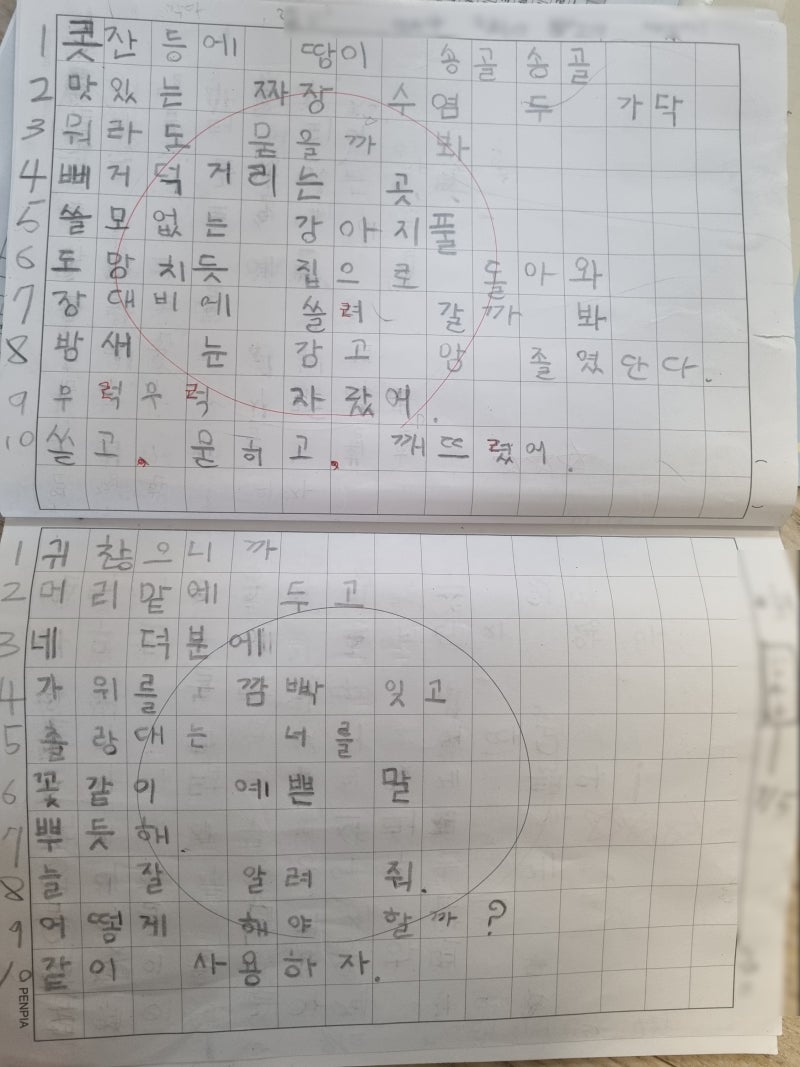 1 콧잔등에 땀이 송골송골
2 맛있는 짜장 수염 두 가닥
3 뭐라도 묻을까 봐
4 삐거덕거리는 곳
5 쓸모없는 강아지풀
6 도망치듯 집으로 돌아와
7 장대비에 쓸려 갈까 봐
8 밤새 눈 감고 암 졸였단다.
9 우럭우럭 자랐어.
10 쓸고, 묻히고, 깨뜨렸어.
1 귀찮으니까
2 머리맡에 두고
3 네 덕분에
4 가위를 깜빡 잊고
5 촐랑대는 너를
6 꽃같이 예쁜 말
7 뿌듯해.
8 늘 잘 알려 줘.
9 어떻게 해야 할까?
10 같이 사용하자.
PENPIA